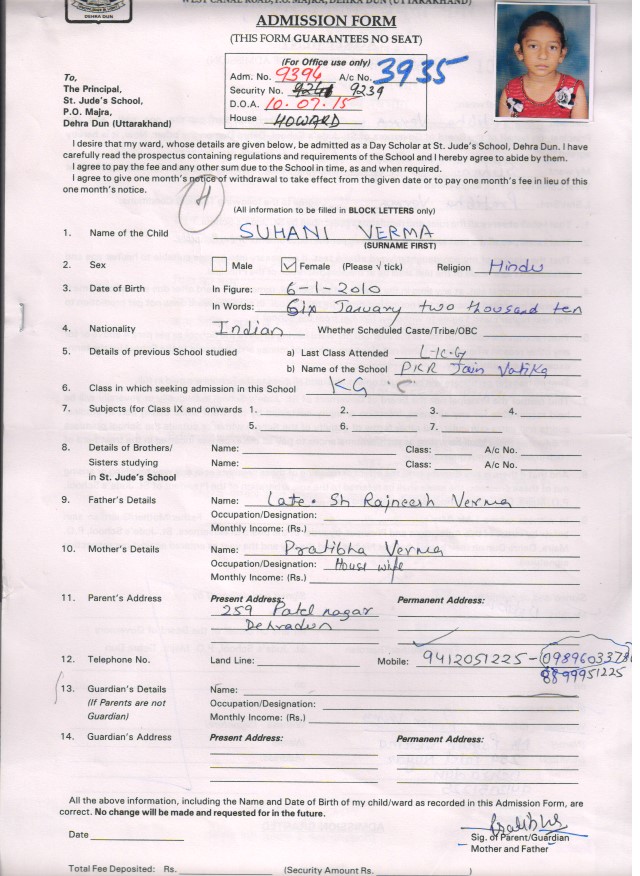 WEST CANAL ROAD, P.O. MAJRA, DEHRA DUN (UTTARAKHAND)
DEHRA DUN
ADMISSION FORM
(THIS FORM GUARANTEES NO SEAT)
(For Office use only)
Adm. No. 9394 A/c No. 3935
Security No. 9239
D.O.A. 10.07.15
House HOWARD
To,
The Principal,
St. Jude's School,
P.O. Majra,
Dehra Dun (Uttarakhand)
I desire that my ward, whose details are given below, be admitted as a Day Scholar at St. Jude's School, Dehra Dun. I have
carefully read the prospectus containing regulations and requirements of the School and I hereby agree to abide by them.
I agree to pay the fee and any other sum due to the School in time, as and when required.
I agree to give one month's notice of withdrawal to take effect from the given date or to pay one month's fee in lieu of this
one month's notice.
(All information to be filled in BLOCK LETTERS only)
1. Name of the Child SUHANI VERMA
(SURNAME FIRST)
2. Sex Male ✓ Female (Please √ tick) Religion Hindu
3. Date of Birth In Figure: 6-1-2010
In Words: Six January two thousand ten
4. Nationality Indian Whether Scheduled Caste/Tribe/OBC
5. Details of previous School studied a) Last Class Attended L.K.G
b) Name of the School PKR Jain Vatika
6. Class in which seeking admission in this School KG
7. Subjects (for Class IX and onwards 1. 2. 3. 4.
5. 6. 7.
8. Details of Brothers/ Name: Class: A/c No.
Sisters studying Name: Class: A/c No.
in St. Jude's School
9. Father's Details Name: Late. Sh Rajneesh Verma
Occupation/Designation:
Monthly Income: (Rs.)
10. Mother's Details Name: Pratibha Verma
Occupation/Designation: House wife
Monthly Income: (Rs.)
11. Parent's Address Present Address: Permanent Address:
259 Patel nagar
Dehradun
12. Telephone No. Land Line: Mobile: 9412051225 -
8899951225
13. Guardian's Details Name:
(If Parents are not Occupation/Designation:
Guardian) Monthly Income: (Rs.)
14. Guardian's Address Present Address: Permanent Address:
All the above information, including the Name and Date of Birth of my child/ward as recorded in this Admission Form, are
correct. No change will be made and requested for in the future.
Date
Sig. of Parent/Guardian
Mother and Father
Total Fee Deposited: Rs. (Security Amount Rs. )